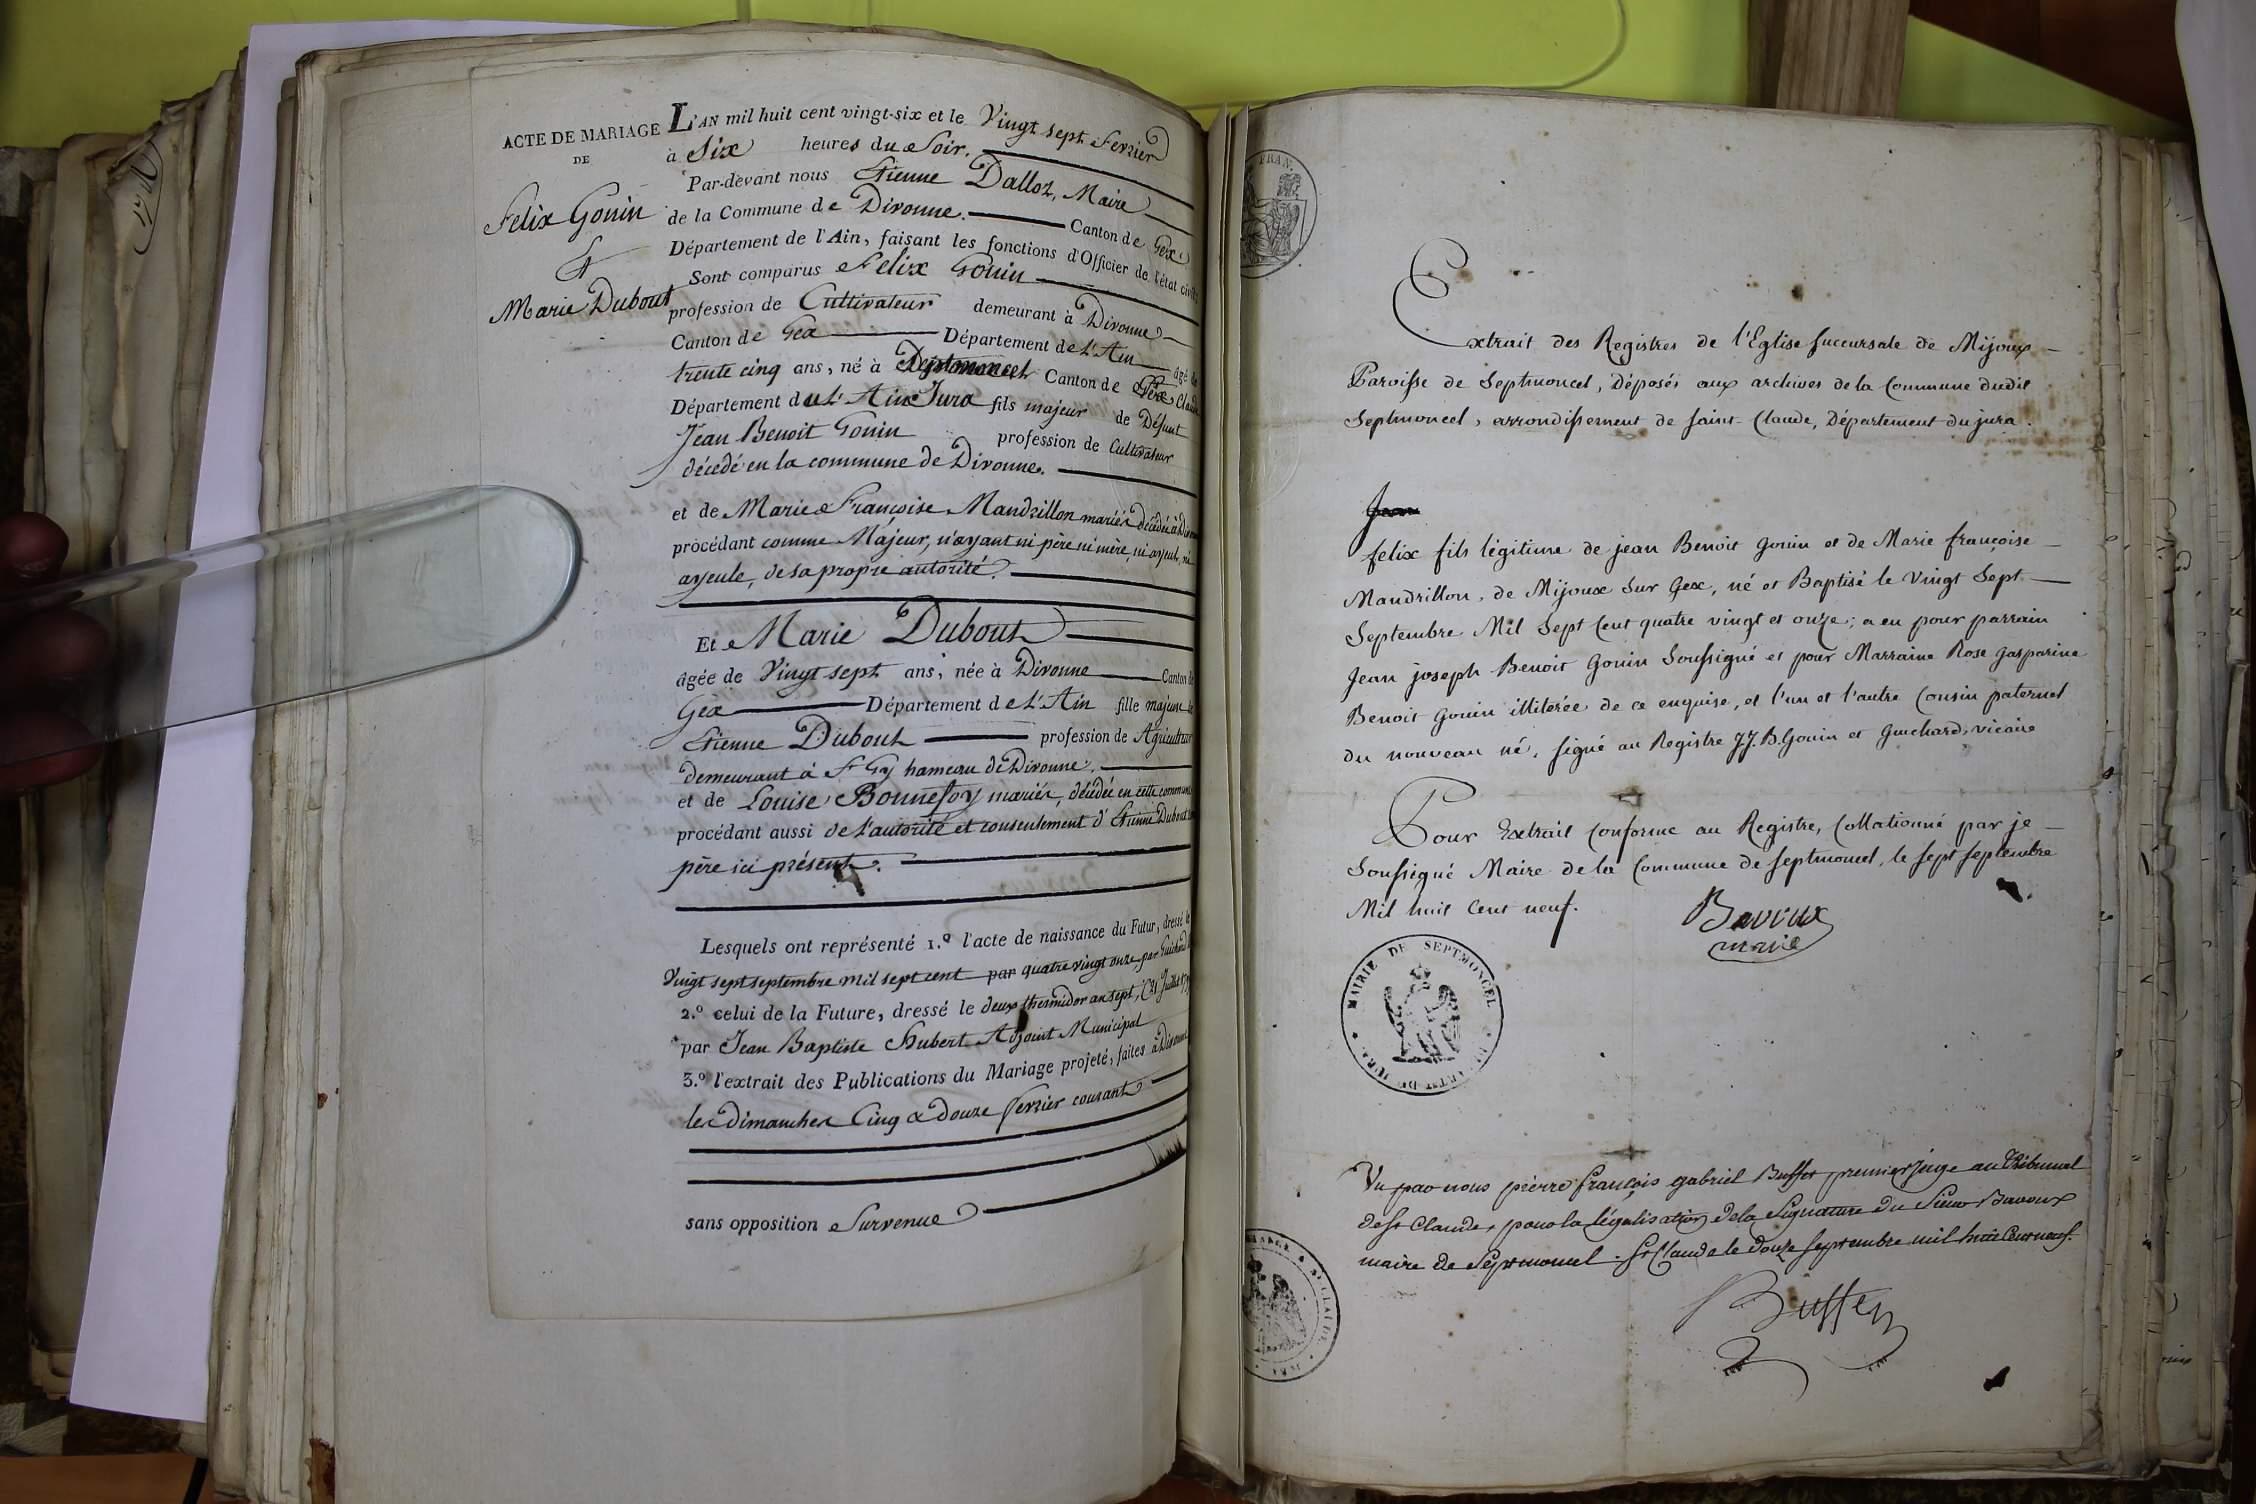 ACTE DE MARIAGE
DE
Felix Gonin
&
Marie Dubout
L'AN mil huit cent vingt-six et le Vingt sept Fevrier
à Six heures du Soir.
Par-devant nous Etienne Dalloz, Maire
de la Commune de Divonne. Canton de Gex
Département de l'Ain, faisant les fonctions d'Officier de l'état civil
Sont comparus Felix Gonin
profession de Cultivateur demeurant à Divonne
Canton de Gex Département de L'Ain âgé de
trente cinq ans, né à Septmoncel Canton de Gex Claude
Département du L'Ain Jura fils majeur de Défunt
Jean Benoit Gonin profession de Cultivateur
décédé en la commune de Divonne.
et de Marie Françoise Mandrillon mariés décédée à Divonne
procédant comme Majeur, n'ayant ni père ni mère, ni ayeul, ni
ayeule, de sa propre autorité.
Et Marie Dubout
agée de Vingt-sept ans, née à Divonne Canton de
Gex Département de L'Ain fille majeure de
Etienne Dubout profession de Agriculteur
demeurant à St Gy hameau de Divonne.
et de Louise Bonnefoy mariés, décédée en cette commune
procédant aussi de l'autorité et consentement d'Etienne Dubout son
père ici présent.
Lesquels ont représenté 1.º l'acte de naissance du Futur, dressé le
Vingt sept septembre mil sept cent par quatre vingt onze, par Guichard
2.º celui de la Future, dressé le deux thermidor an sept, (21 Juillet
par Jean Baptiste Hubert Adjoint Municipal
3.º l'extrait des Publications du Mariage projeté, faites à Divonne
les Dimanches Cinq & Douze fevrier courant
sans opposition Survenue
FRAN.
Extrait des Registres de l'Eglise succursale de Mijoux
Paroisse de Septmoncel, Déposés aux archives de la Commune dudit
Septmoncel, arrondissement de saint-Claude, Département du jura.
Jean
felix fils légitime de jean Benoit gonin et de Marie françoise
Mandrillon, de Mijoux sur Gex, né et Baptisé le vingt Sept
Septembre Mil Sept Cent quatre vingt et onze; a eu pour parrain
Jean joseph Benoit gonin Soussigné et pour Marraine Rose gasparine
Benoit gonin illiterée de ce enquise, et l'un et l'autre Cousin paternel
du nouveau né, signé au Registre J.J.B. Gonin et Guichard, vicaire
Pour Extrait Conforme au Registre, Collationné par je
Soussigné Maire de la Commune de septmoncel, le sept septembre
Mil huit Cent neuf.
Bavoux
maire
MAIRIE DE SEPTMONCEL DU JURA
Vu par nous pierre françois gabriel Buffet premier juge au tribunal
de St Claude, pour la légalisation de la Signature du Sieur Bavoux
maire de Septmoncel. St Claude le douze septembre mil huit Cent neuf.
Buffet
ST CLAUDE. JURA